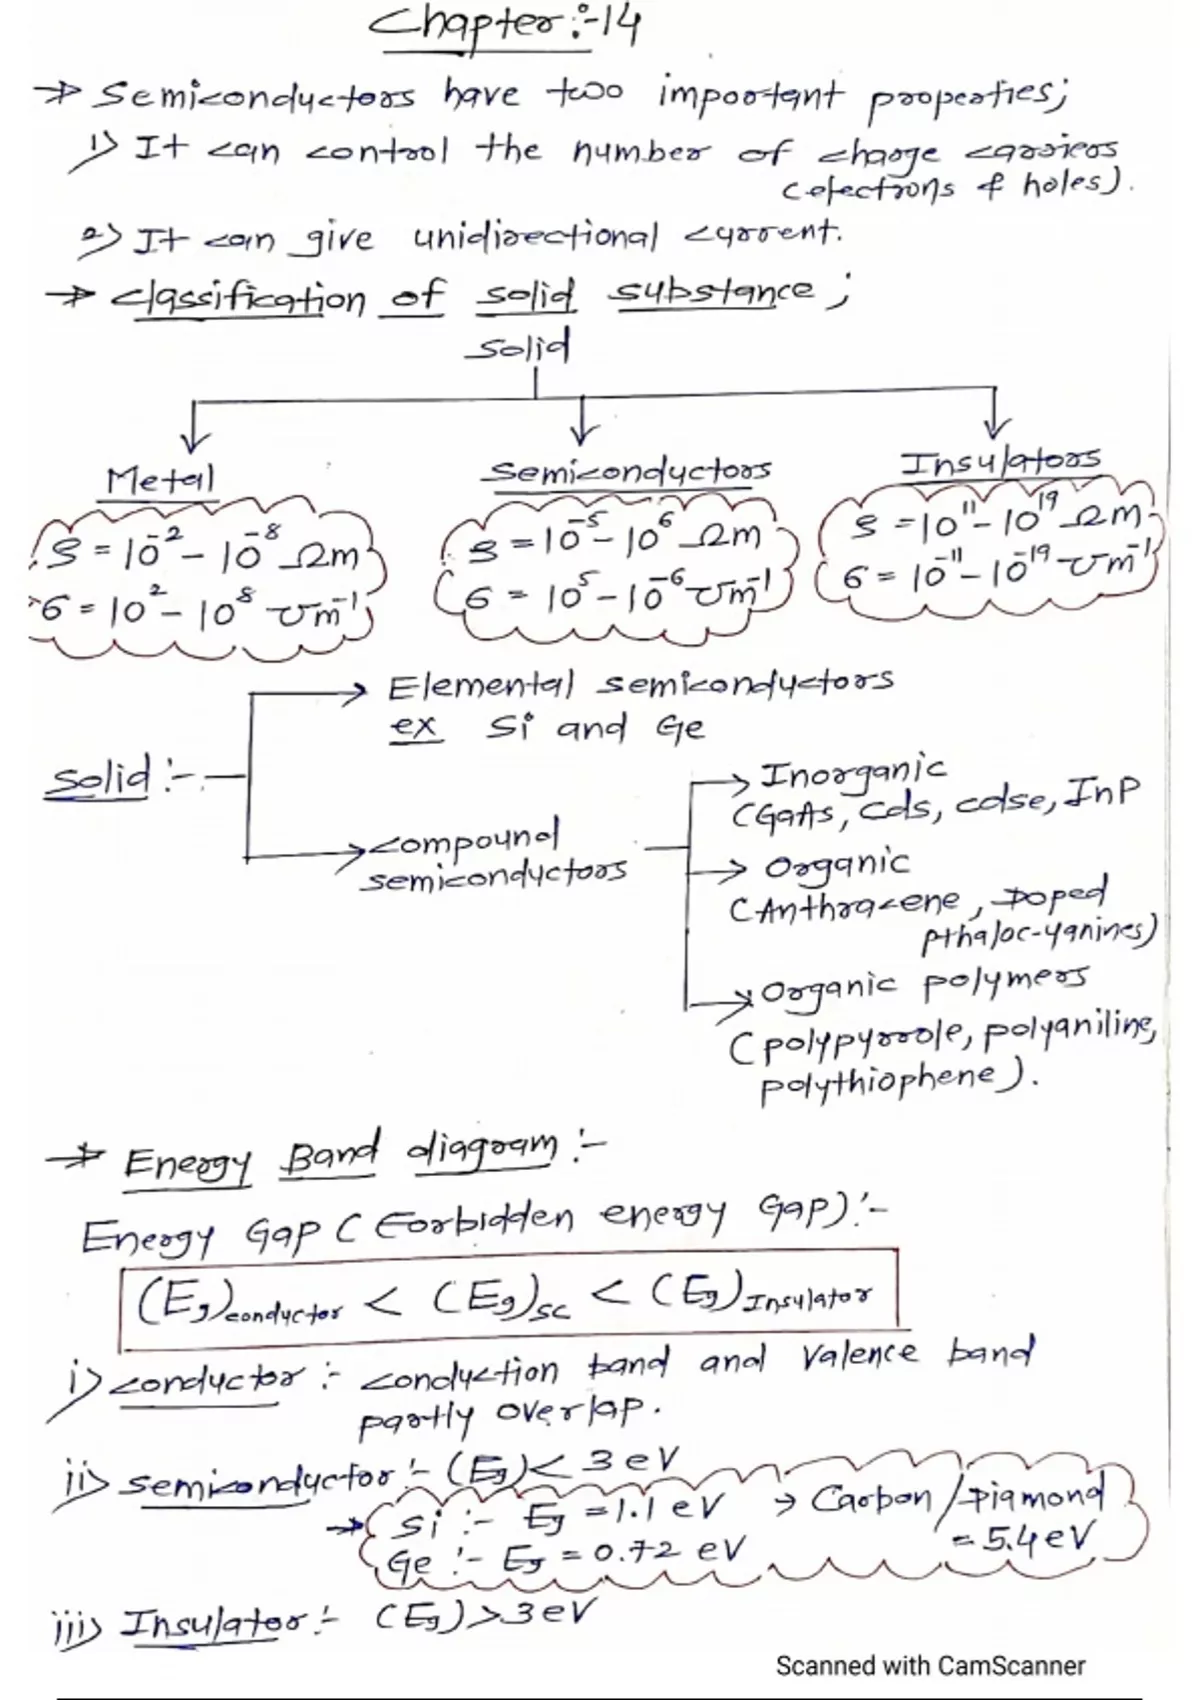 Chapter:-14
→ Semiconductors have two important properties;
1) It can control the number of charge carriers
(electrons & holes).
2) It can give unidirectional current.
→ Classification of solid substance;
Solid
Metal Semiconductors Insulators
ρ = 10⁻² - 10⁻⁸ Ωm ρ = 10⁻⁵ - 10⁶ Ωm ρ = 10¹¹ - 10¹⁹ Ωm
σ = 10² - 10⁸ ℧m⁻¹ σ = 10⁵ - 10⁻⁶ ℧m⁻¹ σ = 10⁻¹¹ - 10⁻¹⁹ ℧m⁻¹
→ Elemental semiconductors
ex Si and Ge
Solid :-
→ Compound
semiconductors
→ Inorganic
(GaAs, Cds, cdse, InP
→ Organic
(Anthracene, Doped
pthaloc-yanines)
→ Organic polymers
(polypyrrole, polyaniline,
polythiophene).
→ Energy Band diagram :-
Energy Gap (Forbidden energy Gap):-
(Eg)conductor < (Eg)SC < (Eg)Insulator
i) conductor :- conduction band and Valence band
partly overlap.
ii) semiconductor :- (Eg) < 3 eV
→ Si :- Eg = 1.1 eV → Carbon/Diamond
= 5.4 eV
Ge :- Eg = 0.72 eV
iii) Insulator :- (Eg) > 3 eV
Scanned with CamScanner